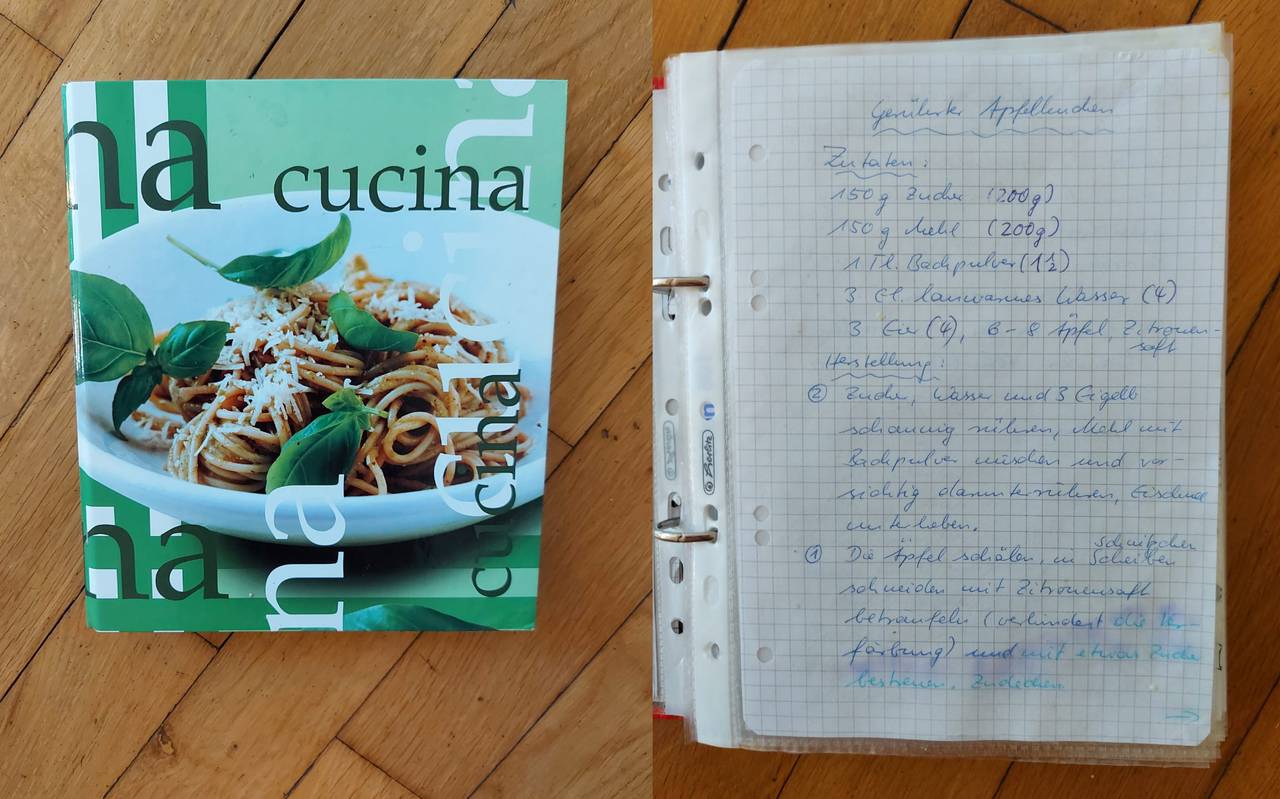 na
cucina
cucina
cucina
na
na
Gerührter Apfelkuchen
Zutaten:
150 g Zucker (200g)
150 g Mehl (200g)
1 Tl. Backpulver (1 1/2)
3 El. lauwarmes Wasser (4)
3 Eier (4), 6-8 Äpfel, Zitronen-
saft
Herstellung:
② Zucker, Wasser und 3 Eigelb
schaumig rühren, Mehl mit
Backpulver mischen und vor-
sichtig darunterrühren, Eischnee
unterheben.
schnipchen
① Die Äpfel schälen, in Scheiben
schneiden mit Zitronensaft
beträufeln (verhindert die Ver-
färbung) und mit etwas Zucker
bestreuen. Zudecken.
→
Herlitz